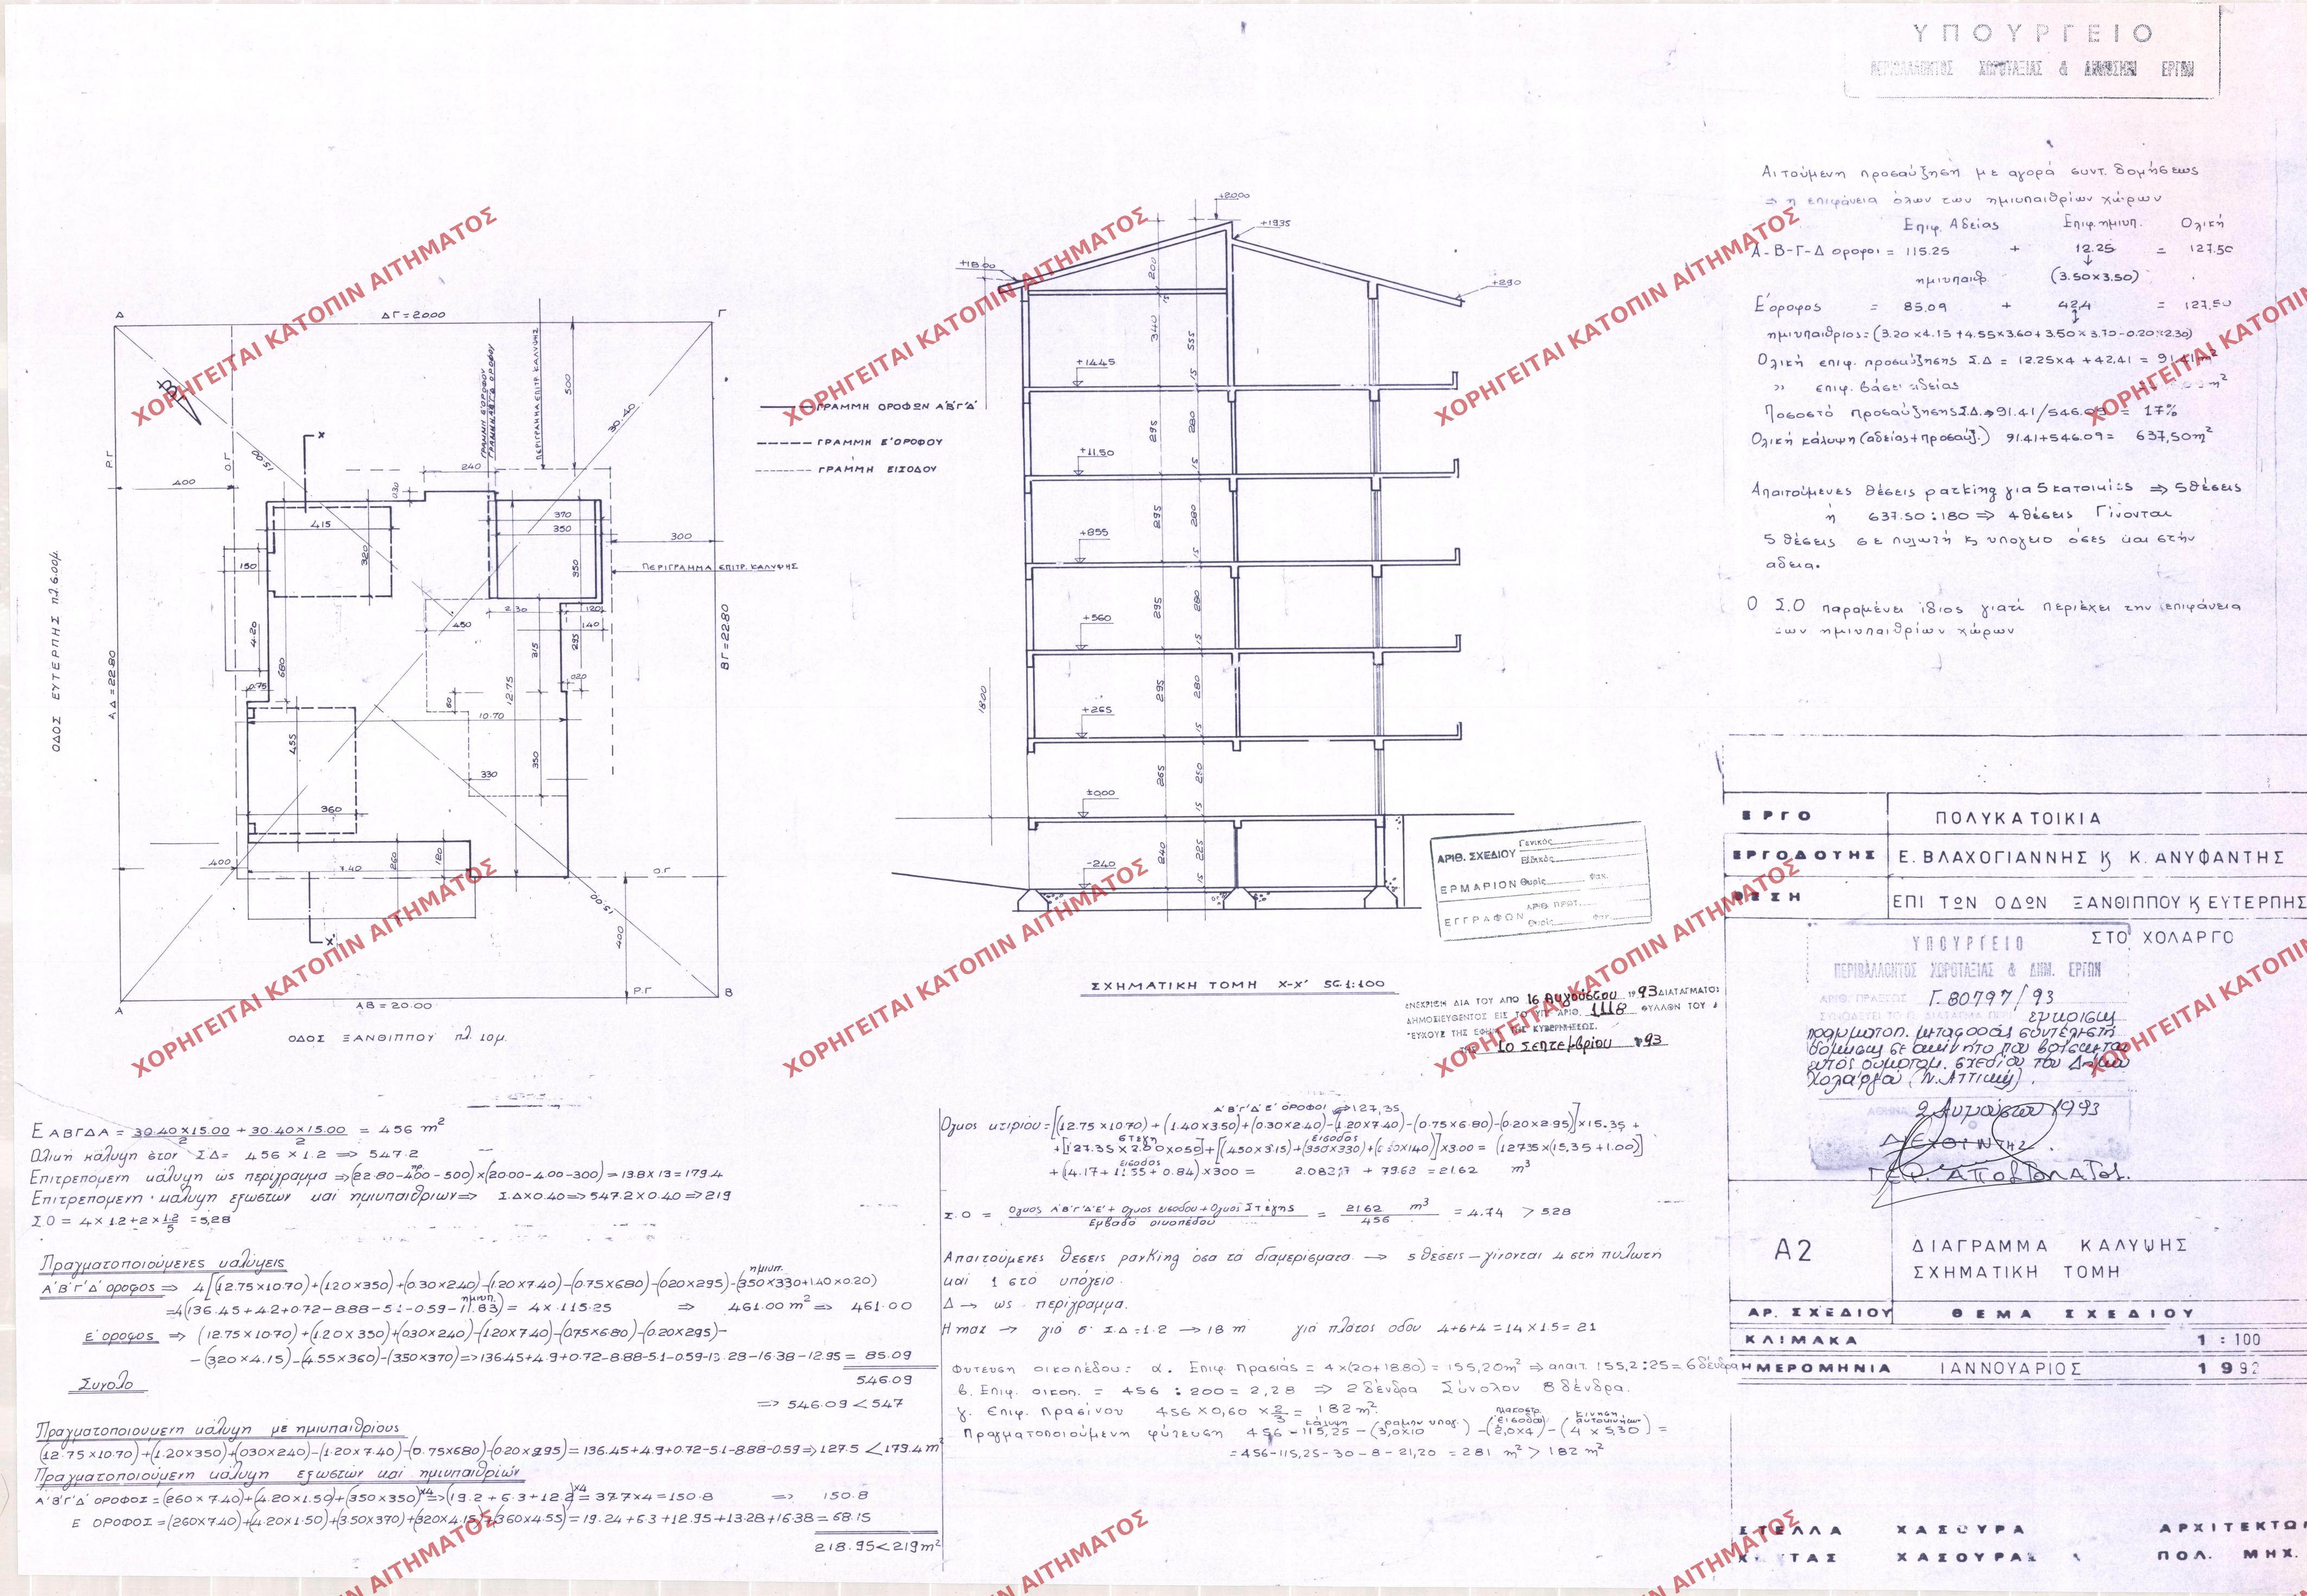 ΥΠΟΥΡΓΕΙΟ
ΠΕΡΙΒΑΛΛΟΝΤΟΣ ΧΩΡΟΤΑΞΙΑΣ & ΔΗΜΟΣΙΩΝ ΕΡΓΩΝ
Αιτούμενη προσαύξηση με αγορά συντ. δομήσεως
⇒ η επιφάνεια όλων των ημιυπαιθρίων χώρων
Επιφ. Αδείας Επιφ. ημιυπ. Ολική
Α-Β-Γ-Δ οροφοι = 115.25 + 12.25 = 127.50
ημιυπαιθ. (3.50×3.50)
Ε΄οροφος = 85.09 + 42,4 = 127.50
ημιυπαιθριος = (3.20×4.15+4.55×3.60+3.50×3.70-0.20×2.30)
Ολική επιφ. προσαύξησης Σ.Δ = 12.25×4+42,41 = 91.41 m²
〃 επιφ. βάσει αδείας m²
Ποσοστό προσαύξησης Σ.Δ.⇒91.41/546.09 = 17%
Ολική κάλυψη (αδείας+προσαύξ.) 91.41+546.09= 637,50m²
Απαιτούμενες θέσεις parking για 5 κατοικίες ⇒ 5 θέσεις
ή 637.50:180 ⇒ 4 θέσεις Γίνονται
5 θέσεις σε πυλωτή ϗ υπογειο όσες και στήν
αδεια.
Ο Σ.Ο παραμένει ίδιος γιατί περιέχει την επιφάνεια
των ημιυπαιθρίων χώρων
Δ ΔΓ=20.00 Γ
ΓΡΑΜΜΗ Ε΄ΟΡΟΦΟΥ
ΠΕΡΙΓΡΑΜΜΑ ΕΠΙΤΡ. ΚΑΛΥΨΗΣ
500
30.40
15.00
Β
Ρ.Γ
Ο.Γ
400
x
240
030
415
320
370
350
350
300
ΠΕΡΙΓΡΑΜΜΑ ΕΠΙΤΡ. ΚΑΛΥΨΗΣ
150
4.20
680
0.75
2.30
120
450
140
295
315
020
60
12.75
10.70
455
350
330
360
ΟΔΟΣ ΕΥΤΕΡΠΗΣ πλ. 6.00μ.
ΑΔ=22.80
ΒΓ=22.80
400
7.40
260
120
Ο.Γ
15.00
400
x'
Ρ.Γ
Α ΑΒ=20.00 Β
ΟΔΟΣ ΞΑΝΘΙΠΠΟΥ πλ. 10μ.
ΓΡΑΜΜΗ ΟΡΟΦΩΝ Α΄Β΄Γ΄Δ΄
ΓΡΑΜΜΗ Ε΄ΟΡΟΦΟΥ
ΓΡΑΜΜΗ ΕΙΣΟΔΟΥ
+20.00
+19.35
+18.00
+290
200
15
340
555
+14.45
15
295
280
+11.50
15
295
280
+855
15
295
280
+560
15
295
280
+265
15
18.00
265
250
±000
15
240
225
-240
15
ΣΧΗΜΑΤΙΚΗ ΤΟΜΗ Χ-Χ' SC.1:100
ΑΡΙΘ. ΣΧΕΔΙΟΥ Γενικός
Ειδικός
ΕΡΜΑΡΙΟΝ Θυρίς Φακ.
ΕΓΓΡΑΦΩΝ ΑΡΙΘ. ΠΡΩΤ.
Θυρίς Φακ.
ΕΝΕΚΡΙΘΗ ΔΙΑ ΤΟΥ ΑΠΟ 16 Αυγούστου 1993 ΔΙΑΤΑΓΜΑΤΟΣ
ΔΗΜΟΣΙΕΥΘΕΝΤΟΣ ΕΙΣ ΤΟ ΥΠ' ΑΡΙΘ. 1118 ΦΥΛΛΟΝ ΤΟΥ Δ
ΤΕΥΧΟΥΣ ΤΗΣ ΕΦΗΜ. ΤΗΣ ΚΥΒΕΡΝΗΣΕΩΣ.
ΤΗΣ 10 Σεπτεμβρίου 1993
ΕΡΓΟ ΠΟΛΥΚΑΤΟΙΚΙΑ
ΕΡΓΟΔΟΤΗΣ Ε. ΒΛΑΧΟΓΙΑΝΝΗΣ ϗ Κ. ΑΝΥΦΑΝΤΗΣ
ΘΕΣΗ ΕΠΙ ΤΩΝ ΟΔΩΝ ΞΑΝΘΙΠΠΟΥ ϗ ΕΥΤΕΡΠΗΣ
ΣΤΟ ΧΟΛΑΡΓΟ
ΥΠΟΥΡΓΕΙΟ
ΠΕΡΙΒΑΛΛΟΝΤΟΣ ΧΩΡΟΤΑΞΙΑΣ & ΔΗΜ. ΕΡΓΩΝ
ΑΡΙΘ. ΠΡΑΞΕΩΣ Γ. 80797/93
ΣΥΝΟΔΕΥΕΙ ΤΟ Π. ΔΙΑΤΑΓΜΑ ΠΕΡΙ εγκρίσεως
πραγματοπ. μεταφοράς συντελεστή
δόμησης σε ακίνητο που βρίσκεται
εντός ρυμοτομ. σχεδίου του Δήμου
Χολαργού (Ν. Αττικής).
2 Αυγούστου 1993
Ο ΔΙΕΥΘΥΝΤΗΣ
ΓΕΡ. ΑΠΟΣΤΟΛΑΤΟΣ.
Α2 ΔΙΑΓΡΑΜΜΑ ΚΑΛΥΨΗΣ
ΣΧΗΜΑΤΙΚΗ ΤΟΜΗ
ΑΡ. ΣΧΕΔΙΟΥ ΘΕΜΑ ΣΧΕΔΙΟΥ
ΚΛΙΜΑΚΑ 1 : 100
ΗΜΕΡΟΜΗΝΙΑ ΙΑΝΝΟΥΑΡΙΟΣ 1992
ΣΤΕΛΛΑ ΧΑΣΟΥΡΑ ΑΡΧΙΤΕΚΤΩΝ
ΤΑΣ ΧΑΣΟΥΡΑΣ ΠΟΛ. ΜΗΧ.
Ε ΑΒΓΔΑ = 30.40×15.00/2 + 30.40×15.00/2 = 456 m²
Ολική κάλυψη στον ΣΔ= 456 × 1.2 ⇒ 547.2
Επιτρεπόμενη κάλυψη ώς περίγραμμα ⇒ (22.80-400-500)×(20.00-4.00-300)=13.8×13=179.4
Επιτρεπομενη κάλυψη εξωστών καί ημιυπαιθριων⇒ Σ.Δ×0.40⇒547.2×0.40⇒219
ΣΟ = 4× 1.2+2×1.2/5 =5,28
Πραγματοποιούμενες καλύψεις
Α΄Β΄Γ΄Δ΄ οροφος ⇒ 4[(12.75×10.70)+(1.20×350)+(0.30×2.40)-(1.20×7.40)-(0.75×6.80)-(020×295)-(350×330+1.40×0.20) ημιυπ.
=4(136.45+4.2+0.72-8.88-5.1-0.59-11.83 ημιυπ.)= 4×115.25 ⇒ 461.00 m² ⇒ 461.00
Ε΄ οροφος ⇒ (12.75×10.70)+(1.20×350)+(030×240)-(1.20×7.40)-(0.75×6.80)-(0.20×295)-
-(320×4.15)-(4.55×360)-(350×370)⇒136.45+4.9+0.72-8.88-5.1-0.59-13.28-16.38-12.95= 85.09
Συνολο 546.09
⇒ 546.09<547
Πραγματοποιουμενη κάλυψη με ημιυπαιθρίους
(12.75×10.70)+(1.20×350)+(030×240)-(1.20×7.40)-(0.75×680)-(0.20×295)=136.45+4.9+0.72-5.1-8.88-0.59⇒127.5 <179.4 m²
Πραγματοποιούμενη κάλυψη εξωστών και ημιυπαιθρίων
Α΄Β΄Γ΄Δ΄ ΟΡΟΦΟΣ=(260×7.40)+(4.20×1.50)+(350×350)×4⇒(19.2+6.3+12.2)×4= 37.7×4=150.8 ⇒ 150.8
Ε ΟΡΟΦΟΣ=(260×7.40)+(4.20×1.50)+(350×370)+(320×4.15)+(360×4.55)=19.24+6.3+12.95+13.28+16.38= 68.15
218.95<219m²
Α΄Β΄Γ΄Δ΄Ε΄ ΟΡΟΦΟΙ ⇒127,35
Ογκος κτιρίου=[(12.75×10.70)+(1.40×3.50)+(0.30×2.40)-(1.20×7.40)-(0.75×6.80)-(0.20×2.95)]×15.35 +
στεγη εισοδος
+[127.35×2.00×0.50]+[(450×315)+(350×330)+(0.60×140)]×3.00 = (127.35×(15,35+1.00)]
εισοδος
+(14.17+11.55+0.84)×300 = 2.082,7 + 79.68 =2162 m³
Σ.Ο = Ογκος Α΄Β΄Γ΄Δ΄Ε΄+ Ογκος εισοδου+Ογκος Στέγης / Εμβαδό οικοπέδου = 2162 m³ / 456 = 4.74 > 5.28
Απαιτούμενες θεσεις parKing όσα τα διαμερίσματα → 5 θέσεις — γίνονται 4 στη πυλωτή
καί 1 στό υπόγειο.
Δ → ως περίγραμμα.
Η max → γιά σ Σ.Δ=1.2 → 18 m γιά πλάτος οδου 4+6+4=14×1.5=21
Φυτευση οικοπέδου: α. Επιφ. πρασιάς = 4×(20+18.80)=155,20m² ⇒απαιτ. 155,2:25=6 δένδρα
β. Επιφ. οικοπ. = 456 : 200= 2,28 ⇒ 2 δένδρα Σύνολον 8 δένδρα.
γ. Επιφ. πρασίνου 456×0,60×2/3= 182 m².
κάλυψη ραμπη υπογ. πλακοστρ. εισοδου κίνηση αυτοκινήτων
Πραγματοποιούμενη φύτευση 456 -115,25-(3,0×10)-(2,0×4)-(4×5,30)=
=456-115,25-30-8-21,20=281 m²>182 m²
ΧΟΡΗΓΕΙΤΑΙ ΚΑΤΟΠΙΝ ΑΙΤΗΜΑΤΟΣ